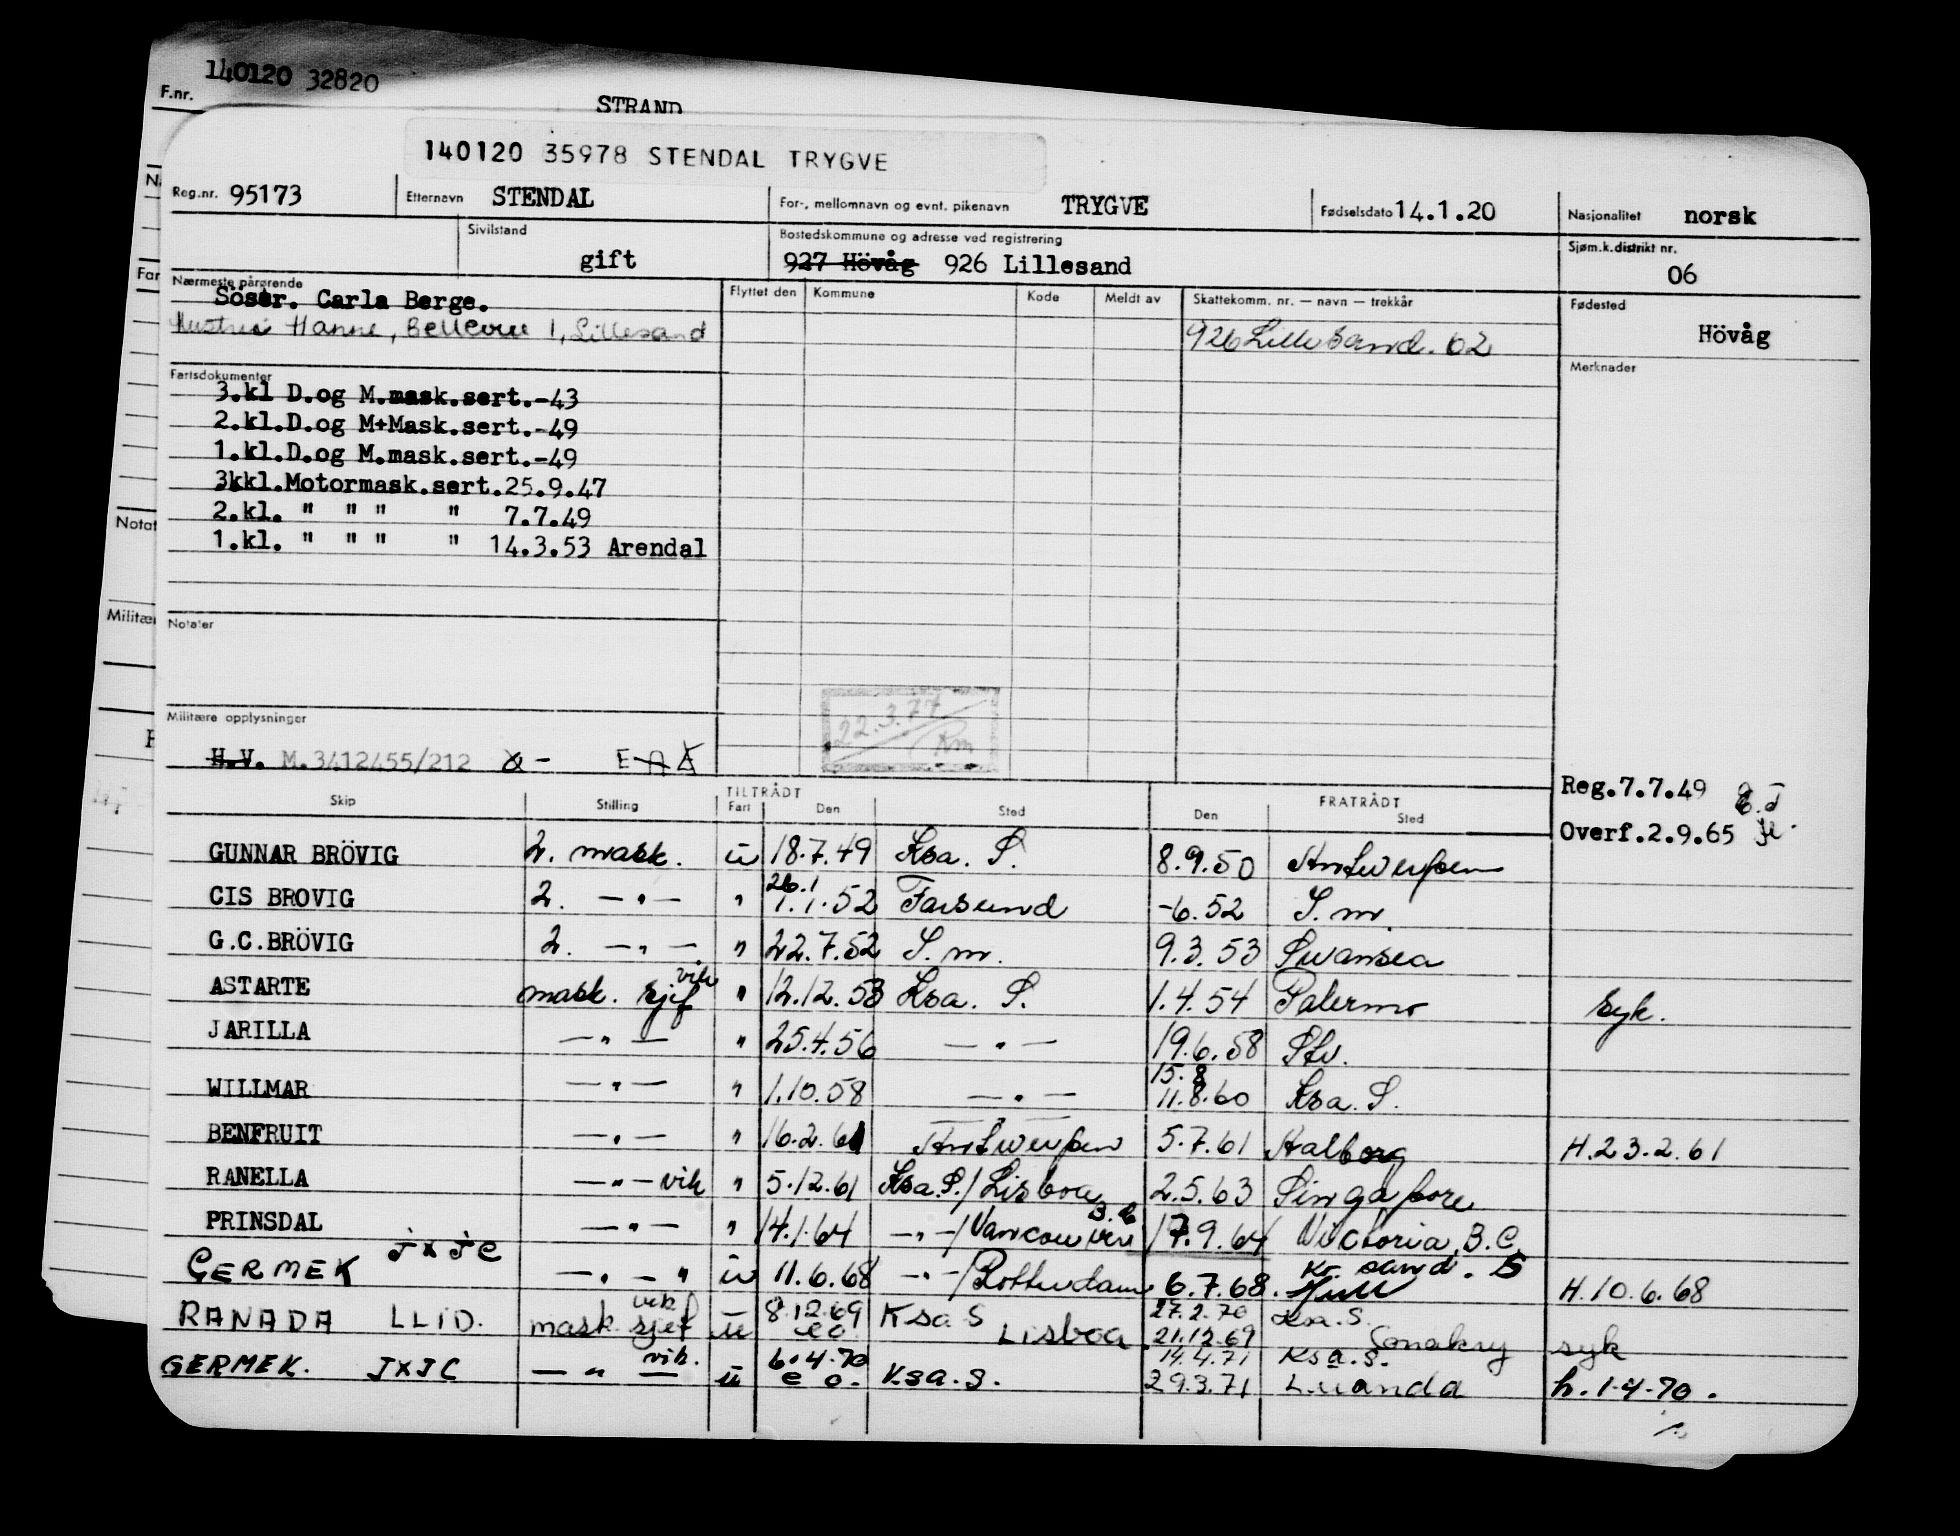 140120 32820
F.nr.
STRAND
140120 35978 STENDAL TRYGVE
Reg.nr. 95173 Etternavn STENDAL For-, mellomnavn og evnt. pikenavn TRYGVE Fødselsdato 14.1.20 Nasjonalitet norsk
Sivilstand gift Bostedskommune og adresse ved registrering 927 Hövåg 926 Lillesand Sjøm.k.distrikt nr. 06
Nærmeste pårørende Flyttet den Kommune Kode Meldt av Skattekomm. nr. — navn — trekkår Fødested
Söstr. Carla Berge.
Hustru Hanne, Bellevue 1, Lillesand 926 Lillesand. 62 Hövåg
Fartsdokumenter Merknader
3.kl D.og M.mask.sert.-43
2.kl.D.og M+Mask.sert.-49
1.kl.D.og M.mask.sert.-49
3kkl.Motormask.sert.25.9.47
2.kl. " " " " 7.7.49
1.kl. " " " " 14.3.53 Arendal
Notat
Militær
Notater
22.3.77
Rm
Militære opplysninger
H.V. M.3412455/212 E-A
Reg.7.7.49
Overf.2.9.65
Skip Stilling TILTRÅDT Fart Den Sted FRATRÅDT Den Sted
GUNNAR BRÖVIG 2. mask. u 18.7.49 Ksa. S. 8.9.50 Antwerpen
CIS BROVIG 2. — " — " 26.1 1.1.52 Farsund -6.52 S.m.
G.C.BRÖVIG 2. — " — " 22.7.52 S.m. 9.3.53 Swansea
ASTARTE mask. sjef vik " 12.12.53 Ksa. S. 1.4.54 Palermo syk.
JARILLA — " — " 25.4.56 — " — 19.6.58 Stv.
WILLMAR — " — " 1.10.58 — " — 15.8 11.8.60 Ksa. S.
BENFRUIT — " — " 16.2.61 Antwerpen 5.7.61 Aalborg H.23.2.61
RANELLA — " — vik " 5.12.61 Ksa.S./Lisboa 2.5.63 Singapore
PRINSDAL — " — " 14.1.64 — " —/Vancouver B.C. 17.9.64 Victoria, B.C.
GERMEK JXJC — " — " u 11.6.68 — " —/Rotterdam 6.7.68. Kr. sand. S Hull H.10.6.68
RANADA LLID. mask. sjef vik u 8.12.69 eo. Ksa S Lisboa 27.2.70 Ksa.S. 21.12.69 Conakry syk
GERMEK. JXJC — " — vik. u 6.4.70 e o. Ksa.S. 14.4.71 Ksa.S. 29.3.71 Luanda h. 1-4-70.